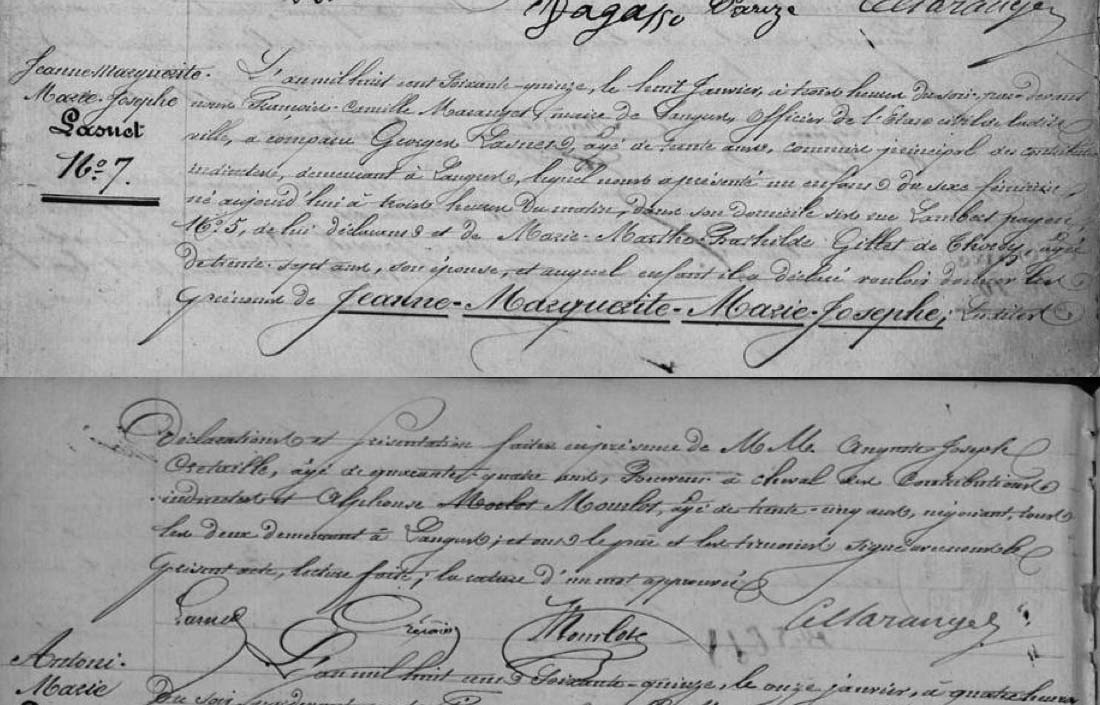 Dagasso Parize CMaranget
Jeanne Marguerite
Marie-Josephe
Lasnet
N° 7.
L'an mil huit cent soixante-quinze, le huit Janvier, à trois heures du soir, par devant
nous François-Camille Maranget, maire de Langres, Officier de l'Etat civil de ladite
ville, a comparu Georges Lasnet, âgé de trente ans, commis principal des contributions
indirectes, demeurant à Langres, lequel nous a présenté un enfant du sexe féminin,
né aujourd'hui à trois heures du matin, dans son domicile sis rue Lambert payen,
N° 5, de lui déclarant et de Marie-Marthe-Bathilde Gillet de Thorey, âgée
de trente-sept ans, son épouse, et auquel enfant il a déclaré vouloir donner les
prénoms de Jeanne-Marguerite-Marie-Josephe; Lesdites
Déclarations et présentation faites en présence de M M. Auguste Joseph
âgé de quarante-quatre ans, Receveur à cheval des Contributions
indirectes et Alphonse Morlot Mourlot, âgé de trente-cinq ans, négociant, tous
les deux demeurant à Langres; et ont le père et les témoins signé avec nous le
présent acte, lecture faite; la rature d'un mot approuvée
Lasnet Mourlot CMaranget
Antoni-
Marie
L'an mil huit cent soixante-quinze, le onze janvier, à quatre heures
du soir, par devant